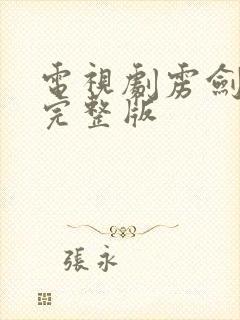 電視劇雳劍
完整版
張永